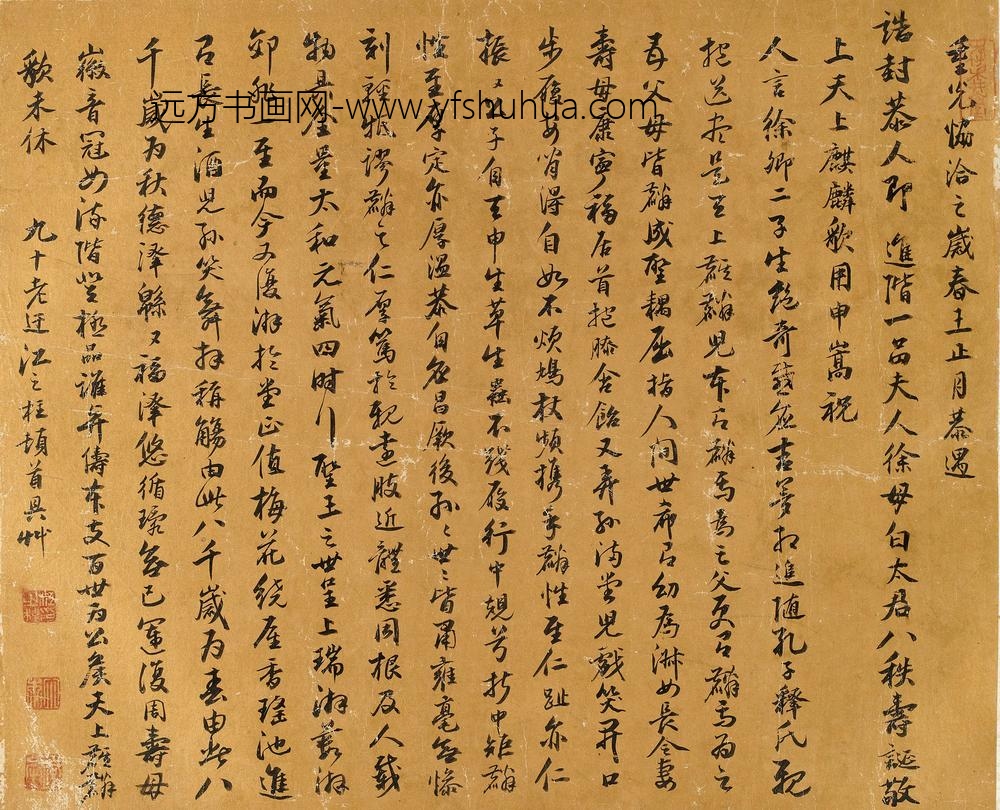 重光協洽之歲春王正月恭遇
誥封恭人即 進階一品夫人徐母白太君八秩壽誕敬
上天上麒麟歌用申嵩祝
人言徐卿二子生絕奇感應吉夢相追隨孔子釋氏親
抱送是天上麒麟兒麟焉為之父更麟焉為之
母父母皆麟成聖耦屈指人間世希有幼為淑女長令妻
壽母康寧福居首抱膝含飴又弄孫滿堂兒戲笑開口
步履安閒得自如不煩鳩杖頻攜手麟性至仁趾亦仁
振又公子自天申生草生蟲不踐履行中規兮折中矩麟
性至厚定亦厚溫恭自應昌厥後孫〻世〻皆肅雍毫無慘
刻謬麟之仁厚篤於親肢近體悉周根及人載
物量太和元氣四時行聖王之世呈上瑞游藪游
郊至而今又復游於堂正值梅花繞屋香瑤池進
長生酒兒孫笑舞拜稱觴由此八千歲為春由此八
千歲為秋德澤綿又福澤悠循環無已運復周壽母
徽音冠女流階登極品誰與儔本支百世為公侯天上麒麟
歌未休 九十老迂江之柱頓首具艸
远方书画网-www.yfshuhua.com